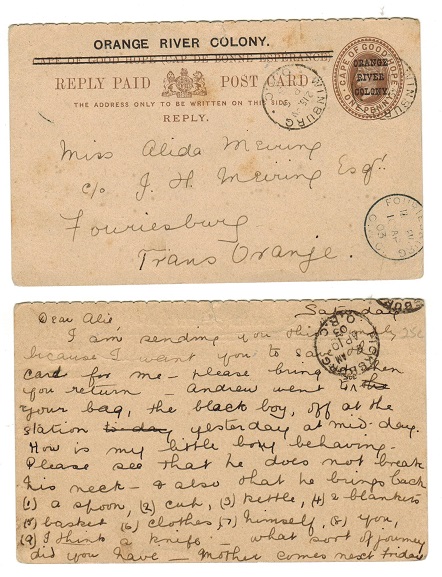 ORANGE RIVER COLONY.
CAPE OF GOOD HOPE (CAP DE BONNE ESPERANCE)
REPLY PAID POST CARD
THE ADDRESS ONLY TO BE WRITTEN ON THIS SIDE.
REPLY.
CAPE OF GOOD HOPE
ORANGE
RIVER
COLONY.
ONE PENNY
WINBURG
Miss Alida Meiring
c/o J. H. Meiring Esqr.
Fouriesburg
Trans Orange.
FOURIESBURG
Saturday
Dear Alie
I am sending you this
because I want you to
card for me - please bring when
you return - Andrew went
your bag, the black boy, off at the
station to-day yesterday at mid-day.
How is my little boy behaving.
Please see that he does not break
his neck - & also that he brings back
(1) a spoon, (2) cup, (3) kettle, (4) 2 blankets
(5) basket (6) clothes (7) himself, (8) you,
(9) I think a knife - what sort of journey
did you have - Mother comes next Friday
FICKSBURG
O.R.C
AP 10
03